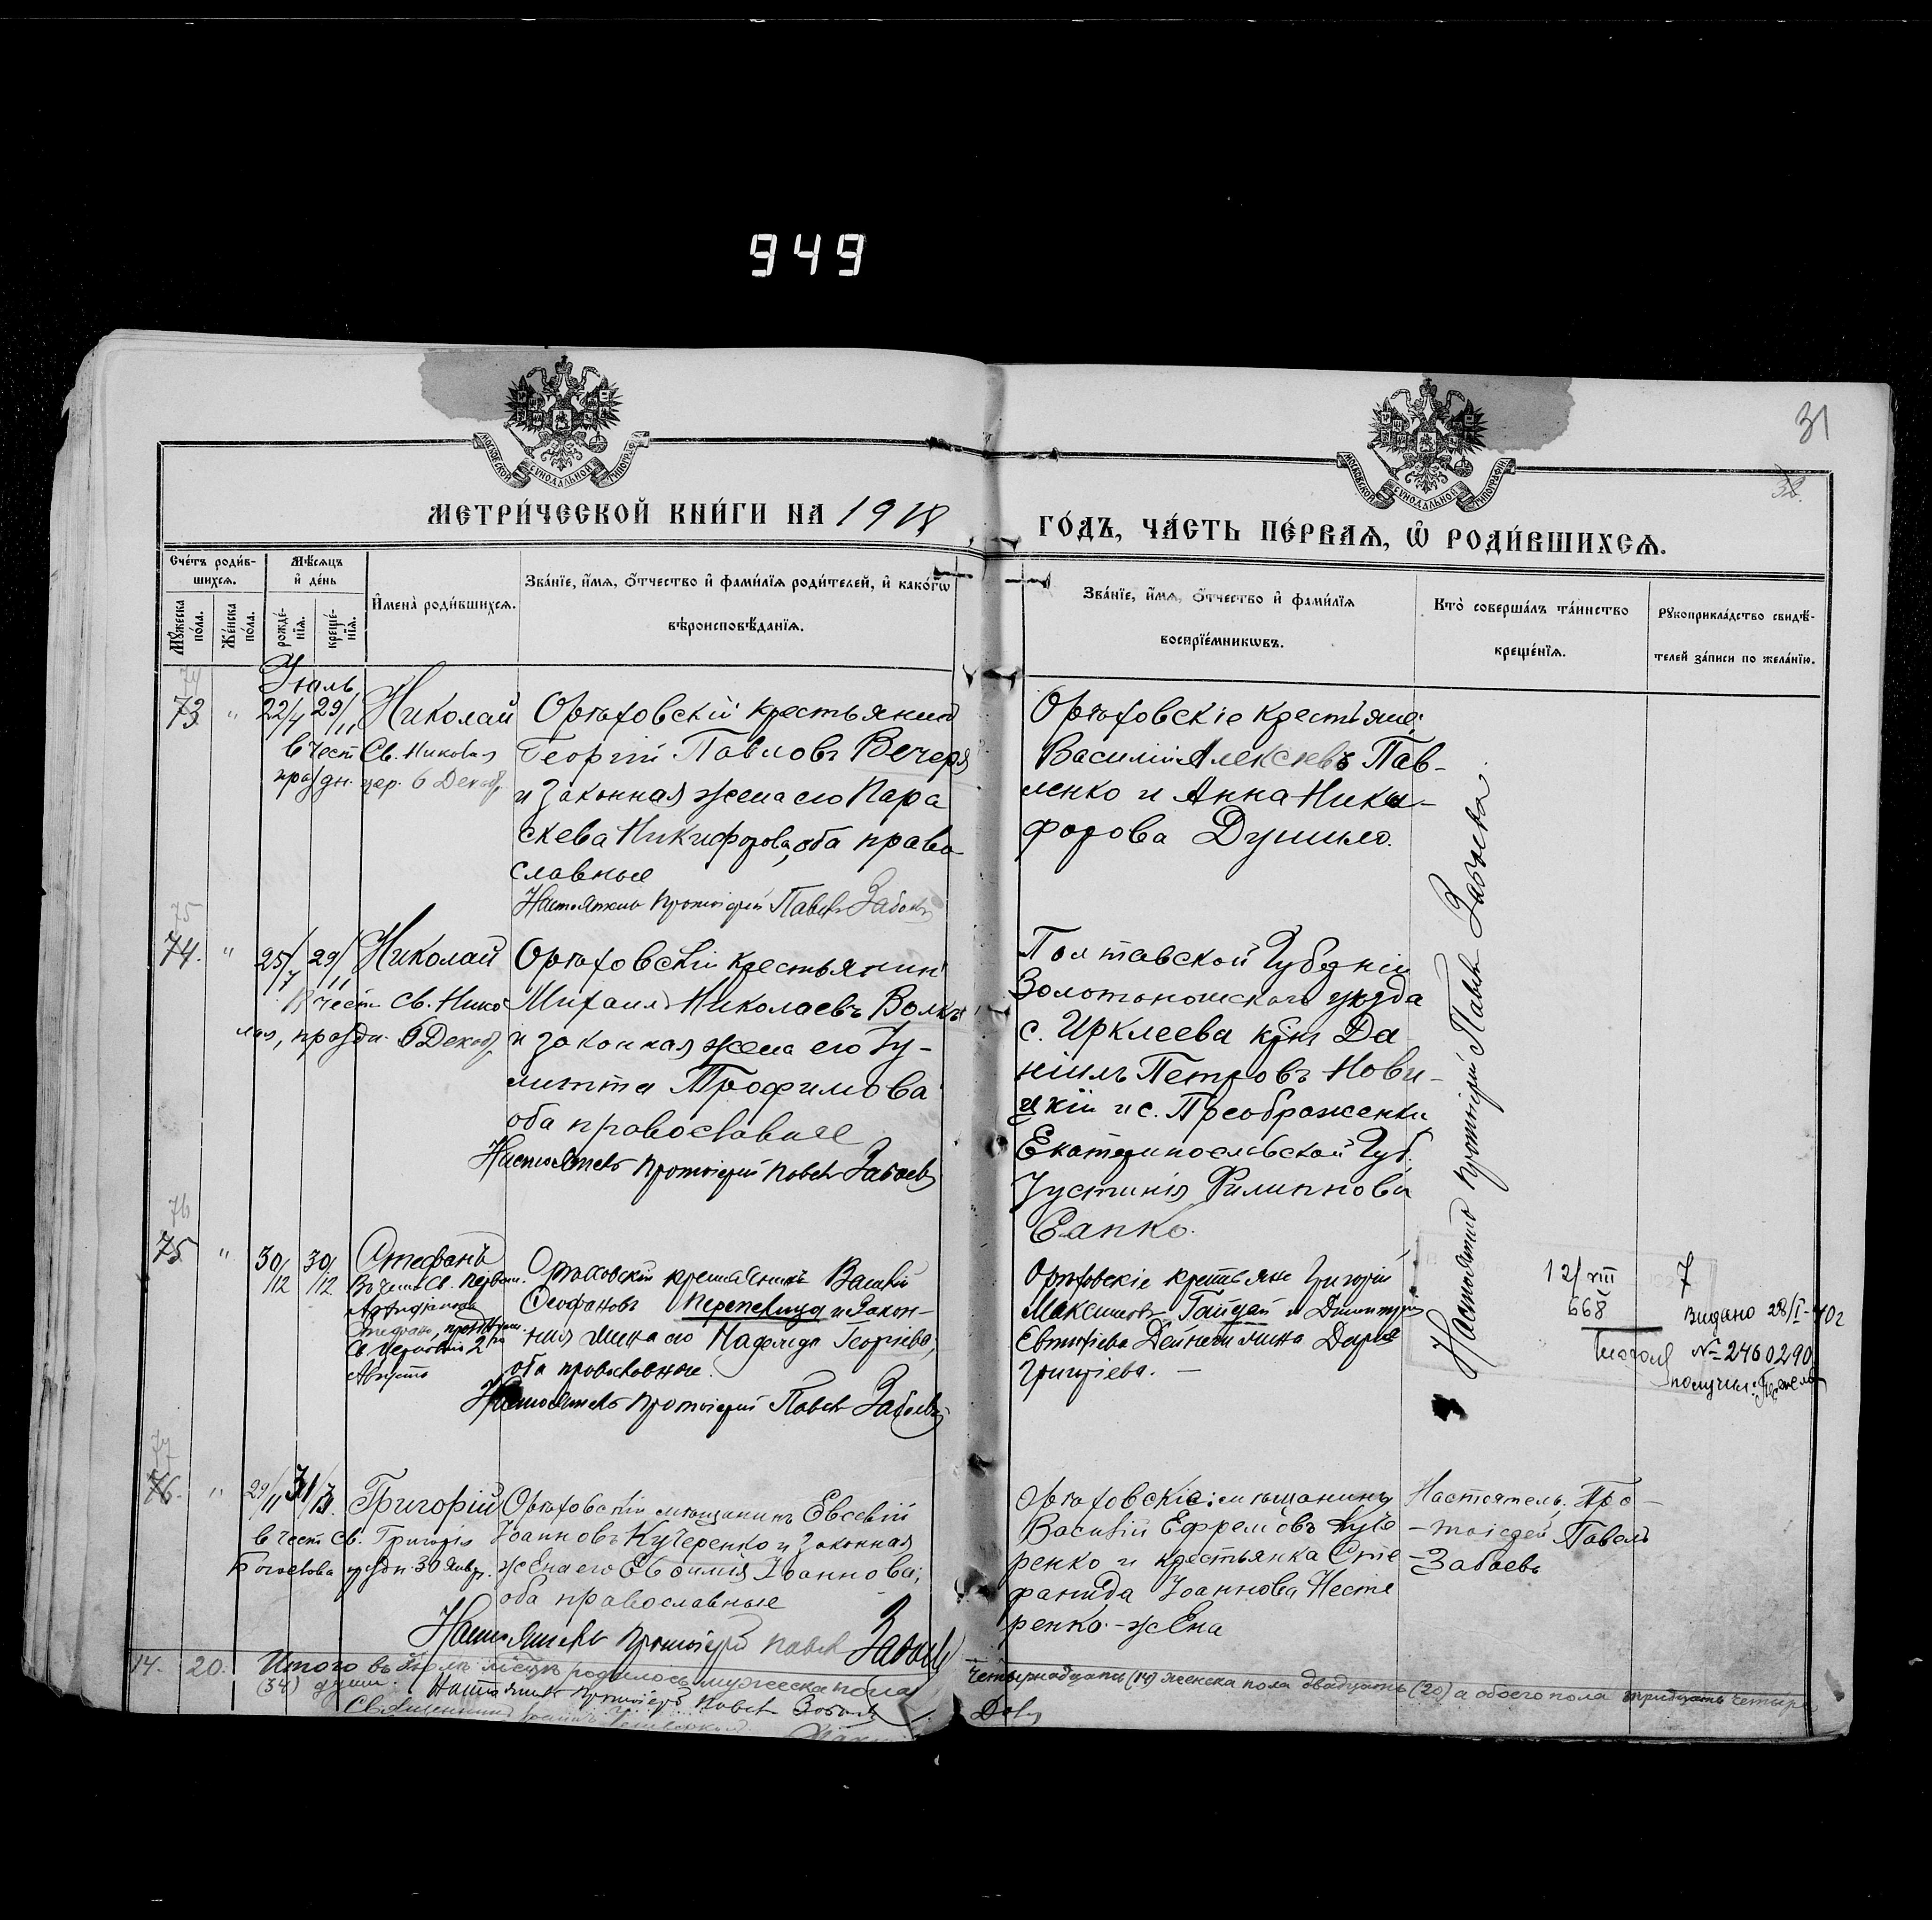 949
31
32.
МОСКОВСКОЙ СѴНОДАЛЬНОЙ ТИПОГРАФІИ
МОСКОВСКОЙ СѴНОДАЛЬНОЙ ТИПОГРАФІИ
МЕТРИ́ЧЕСКОЙ КНИ́ГИ НА 1918
ГО́ДЪ, ЧА́СТЬ ПЕ́РВАѦ, Ѡ҆ РОДИ́ВШИХСѦ.
Сче́тъ роди́в-
шихсѧ.
Мꙋ́жеска по́ла.
Же́нска по́ла.
Мѣ́сѧцъ
и҆ де́нь
рожде́-
нїѧ.
креще́-
нїѧ.
И҆мена̀ роди́вшихсѧ.
Зва́нїе, и҆́мѧ, ѻ҆́тчество и҆ фами́лїѧ роди́телей, и҆ како́гѡ
вѣроисповѣ́данїѧ.
Зва́нїе, и҆́мѧ, ѻ҆́тчество и҆ фами́лїѧ
воспрїе́мникѡвъ.
Кто̀ соверша́лъ та́инство
креще́нїѧ.
Рꙋкоприкла́дство свидѣ́-
телей за́писи по жела́нїю.
Іюль
74
73 " 22/4 29/11 Николай
в чест Св. Николая
праздн. цер. 6 Декабр.
Орѣховскій крестьянинъ
Георгій Павловъ Вечеря
и законная жена его Пара
скева Никифорова, оба право
славные
Настоятель Протоіерей Павелъ Забаевъ
Орѣховскіе крестьяне:
Василій Алексѣевъ Пав-
ленко и Анна Ники-
форова
75
74. " 25/7 29/11 Николай
В чест Св. Нико
лая, праздн. 6 Декабр.
Орѣховскій крестьянинъ
Михаилъ Николаевъ Волкъ
и законная жена его Іу-
литта Трофимова
оба православные
Настоятель Протоіерей Павелъ Забаевъ
Полтавской Губерніи
Золотоношскаго уѣзда
с. Ирклеева крн. Да
ніилъ Петровъ Нови-
цкій и с. Преображенки
Екатеринославской Губ.
Іустинія Филиппова
Сапко.
Настоятель Протоіерей Павелъ Забаевъ
76
75 " 30/12 30/12 Стефанъ
В честь Св. Первом.
Архидіакона
Стефана, празд.
2го
Августа
Орѣховскій крестьянинъ Василій
Феофановъ Перепелица и закон-
ная жена его Надежда Георгіева,
оба православные.
Настоятель Протоіерей Павелъ Забаевъ
Орѣховскіе крестьяне Григорій
Максимовъ Гайдай и Димитрія
Евтихіева Дейнеги жена Дарія
Григоріева. —
12/VIII
668
7
Видано 28/I-40г
№ 2460290
получил:
77
76. " 29/11 31/13. Григорій
в чест Св. Григорія
Богослова праздн. 30 Янвр.
Орѣховскій мѣщанинъ Евсевій
Іоанновъ Кучеренко и законная
жена его Евфимія Іоаннова;
оба православные
Настоятель Протоіерей Павелъ Забаевъ
Орѣховскіе: мѣщанинъ
Василій Ефремовъ Куче
ренко и крестьянка Сте
фанида Іоаннова Несте
ренко.-жена
Настоятель, Про-
-тоіерей Павелъ
-Забаевъ
14. 20. Итого въ Іюлѣ мѣсяцѣ родилось мужеска пола
четырнадцать (14) женска пола двадцать (20) а обоего пола тридцать четыре
(34) души. Настоятель Протоіерей Павелъ Забаевъ
Священникъ